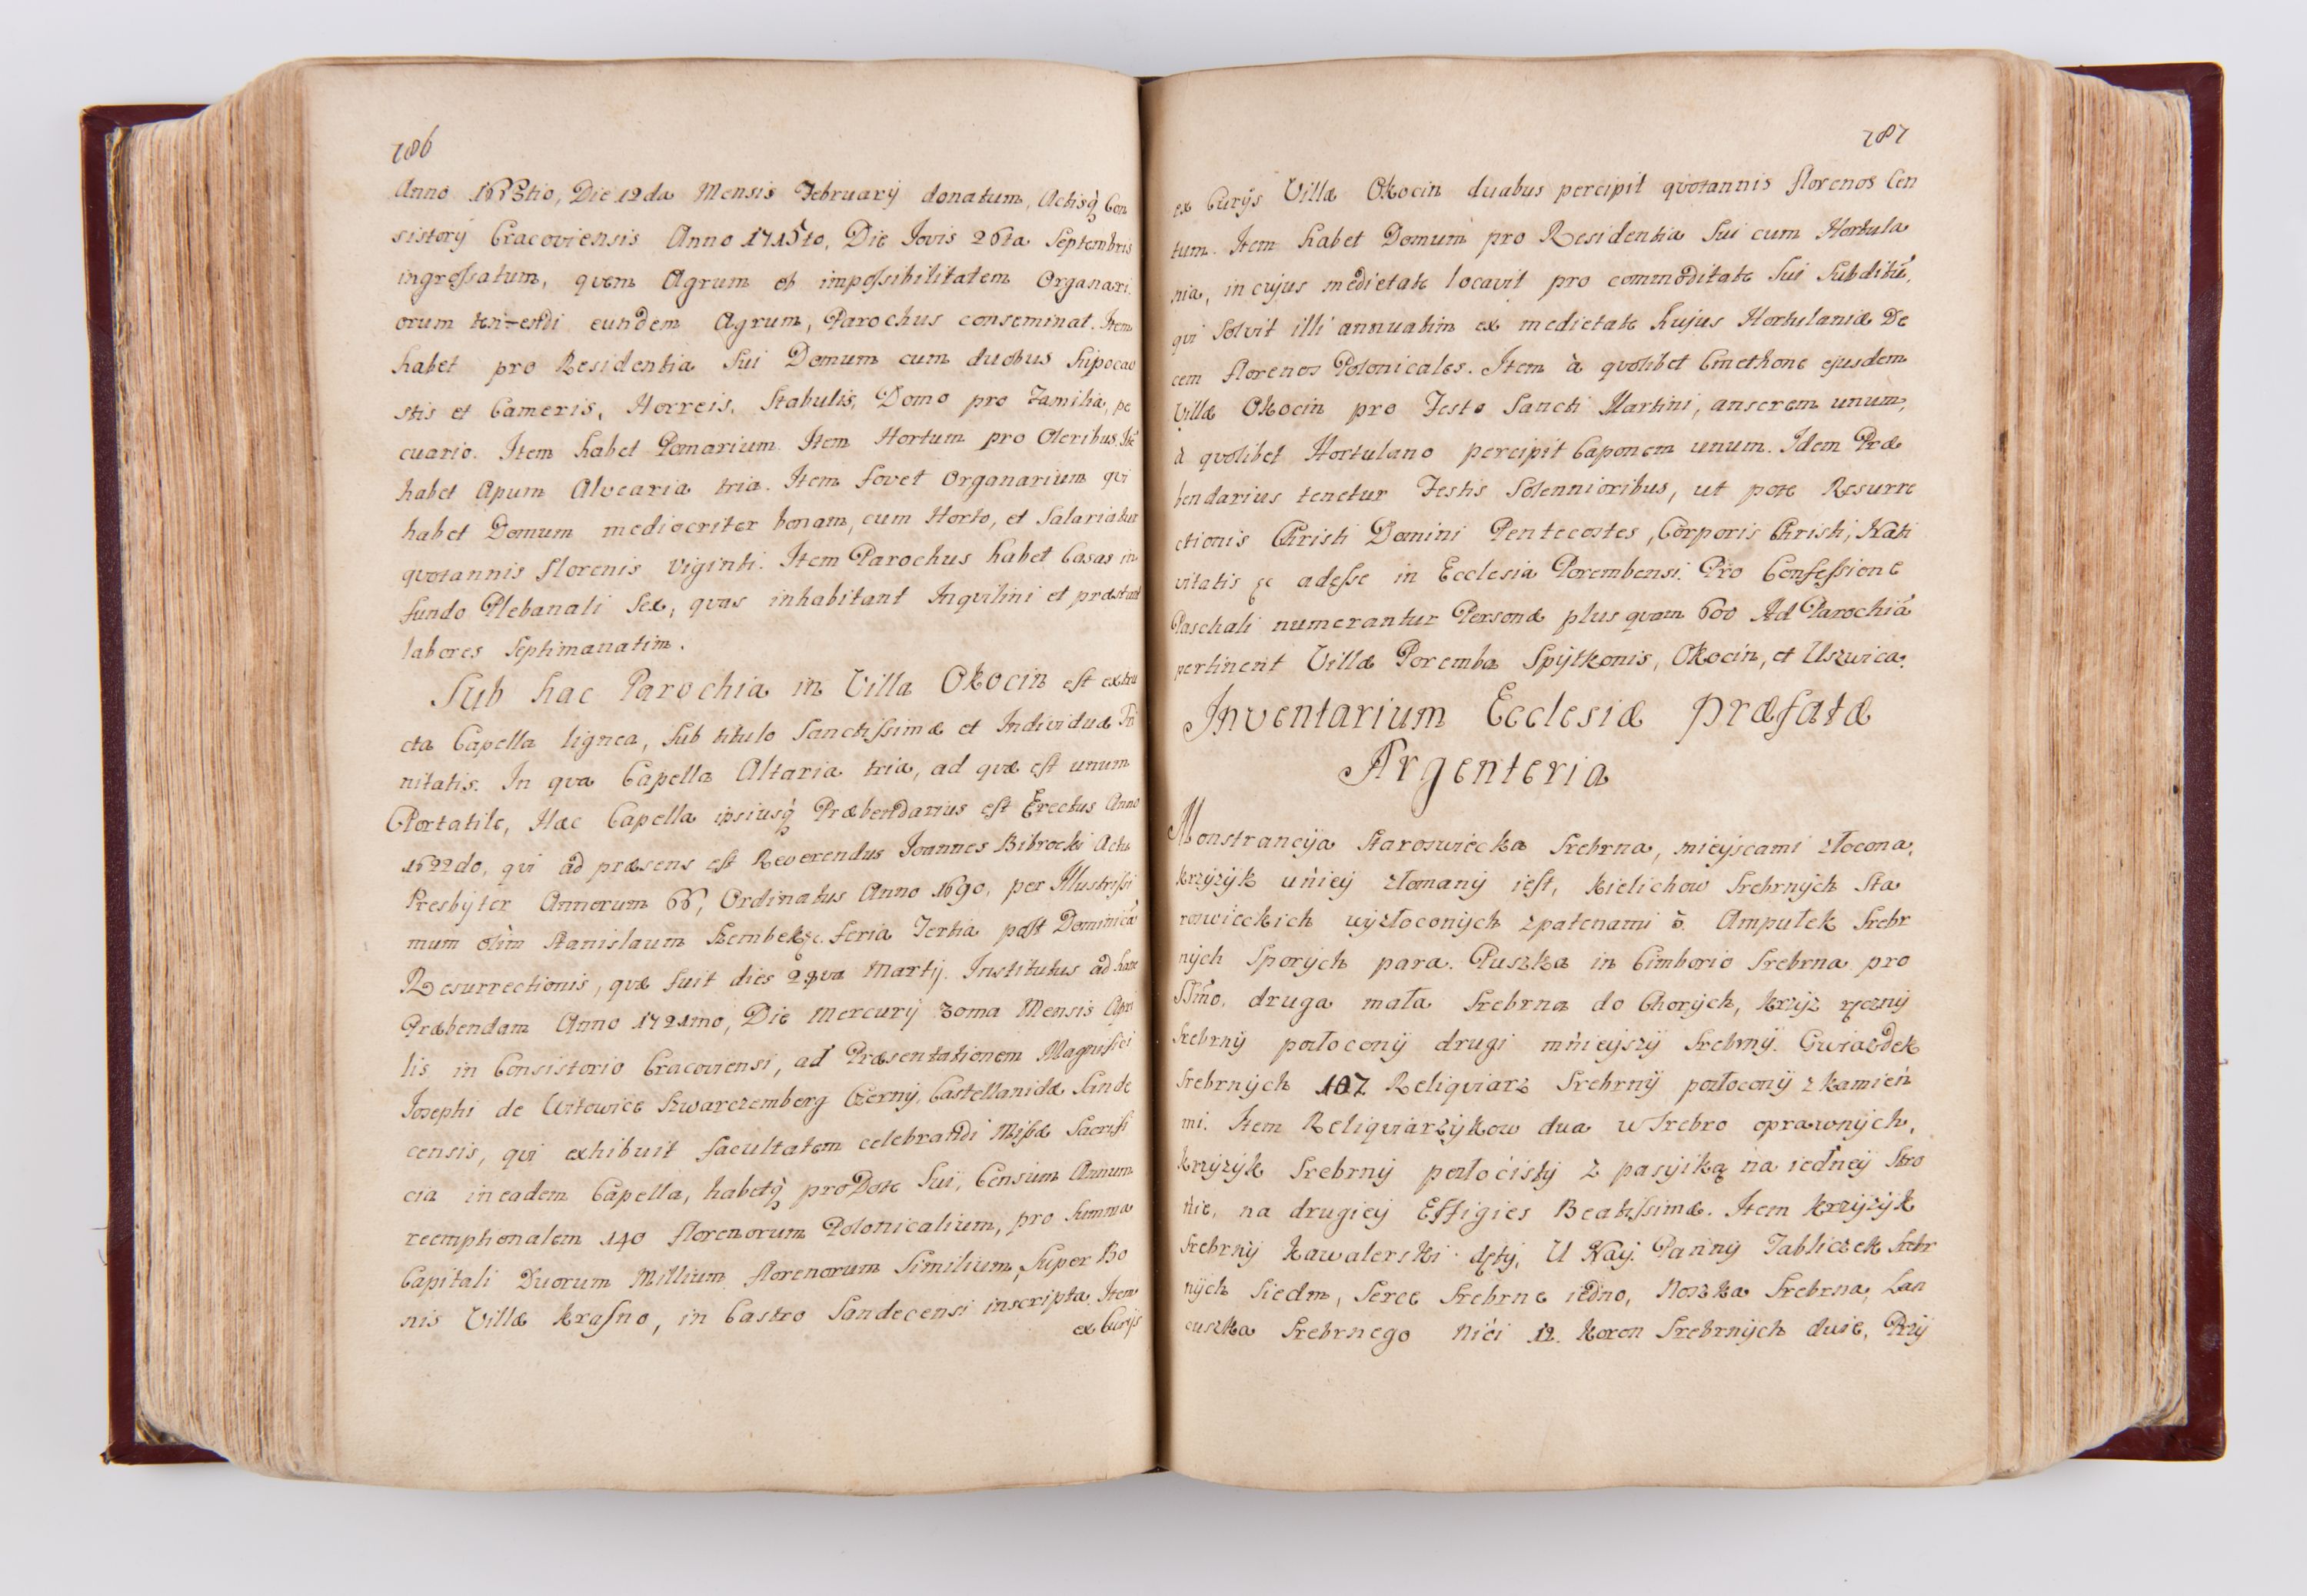 786
Anno 1663tio, Die 12da Mensis February donatum, Actisq́ Con
sistorÿ Cracoviensis Anno 1715to, Die Jovis 26ta Septembris
ingressatum, quem Agrum et impossibilitatem Organari
orum eundem Agrum, Parochus conseminat. Item
habet pro Residentia Sui Domum cum duobus hipocau
stis et Cameris, Horreis, Stabulis, Domo pro Familia, pe
cuario. Item habet Pomarium Item Hortum pro Oleribus. Itē
habet Apum Alvearia tria. Item fovet Organarium qui
habet Domum mediocriter bonam, cum Horto, et Salariatur
quotannis florenis viginti. Item Parochus habet Casas in
fundo Plebanali Sex, quas inhabitant Inquilini et præstant
labores Septimanatim.
Sub hac Parochia in Villa Okocin est extru
cta Capella lignea, Sub titulo Sanctissimæ et Individuæ Tri
nitatis. In qua Capella Altaria tria, ad quæ est unum
Portatile, Hæc Capella ipsiusq́ Præbendarius est Erectus Anno
1622do, qui ad præsens est Reverendus Joannes Bibrocki Actu
Presbyter Annorum 66, Ordinatus Anno 1690, per Illustrissi
mum olim Stanislaum Szembek &c. feria Tertia post Dominicā
Resurrectionis, quæ fuit dies Martÿ. Institutus ad hanc
Præbendam Anno 1721mo, Die Mercurÿ 30ma Mensis Apri
lis in Consistorio Cracoviensi, ad Præsentationem Magnifici
Josephi de Witowice Szwarczemberg Czerny, Castellanidæ Sande
censis, qui exhibuit facultatem celebrandi Missæ Sacrifi
cia in eadem Capella, habetq́ pro Dote Sui, Censum Annum
reemptionalem 140 florenorum Polonicalium, pro Summa
Capitali Duorum Millium florenorum Similium, Super Bo
nis Villæ Krasno, in Castro Sandecensi inscripta. Item
ex Curÿs
787
ex Curÿs Villæ Okocin duabus percipit quotannis florenos Cen
tum. Item habet Domum pro Residentia Sui cum Hortula
nia, in cujus medietate locavit pro commoditate Sui Subditū,
qui Solvit illi annuatim ex medietate hujus Hortulaniæ De
cem florenos Polonicales. Item à quolibet Cmethone ejusdem
Villæ Okocin pro Festo Sancti Martini, anserem unum,
à quolibet Hortulano percipit Caponem unum. Idem Præ
bendarius tenetur Festis Solennioribus, ut pote Resurre
ctionis Christi Domini Pentecostes, Corporis Christi, Nati
vitatis &c adesse in Ecclesia Porembensi. Pro Confessione
Paschali numerantur Personæ plus quam 600 Ad Parochiā
pertinent Villæ Poremba Spÿtkonis, Okocin, et Uszwica.
Inventarium Ecclesiæ Præfatæ
Argenteria
Monstrancÿa Staroswiecka Srebrna, mieyscami złocona,
krzÿżÿk unieÿ złomanÿ iest, kielichow Srebrnÿch Sta
roswieckich wÿzłoconÿch zpatenami 5. Ampułek Srebr
nÿch Sporÿch para. Puszka in Cimborio Srebrna pro
SSmo, druga mała Srebrna do Chorÿch, krzÿż ręcznÿ
Srebrnÿ pozłoconÿ drugi mnieÿszÿ Srebrnÿ. Gwiazdek
Srebrnÿch 107 Reliqviarz Srebrnÿ pozłoconÿ z kamień
mi. Item Reliqviarzÿkow dua w Srebro oprawnÿch,
krzÿżÿk Srebrnÿ pozłocistÿ z pasÿiką na iednéÿ Stro
nie, na drugieÿ Effigies Beatissimæ. Item krzÿżÿk
Srebrnÿ kawalerski dętÿ, U Naÿ: Pannÿ Tabliczek Srebr
nÿch Siedm, Serce Srebrne iedno, Noszka Srebrna, Łan
cuszka Srebrnego Nici 12. koron Srebrnÿch dwie, Przÿ